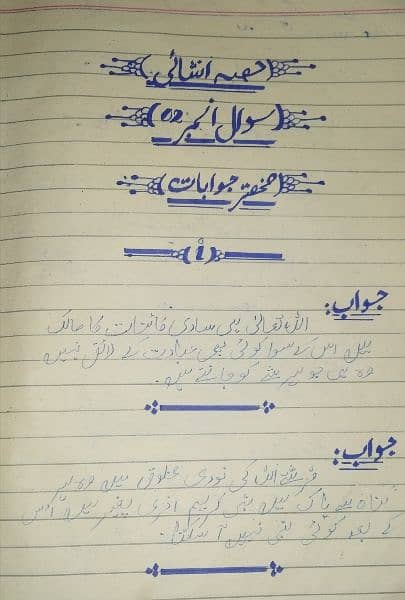 حصہ انشائی
سوال نمبر 02
مختصر جوابات
i
جواب:
اللہ تعالیٰ ہی ساری کائنات کا مالک
ہیں اس کے سوا کوئی بھی عبادت کے لائق نہیں
وہ ہی جو ہر شے کو جانتے ہیں۔
جواب:
فرشتے اللہ کی نوری مخلوق ہیں وہ ہر
گناہ سے پاک ہیں نبی کریم آخری پیغمبر ہیں اُس
کے بعد کوئی نبی نہیں آ سکتا۔